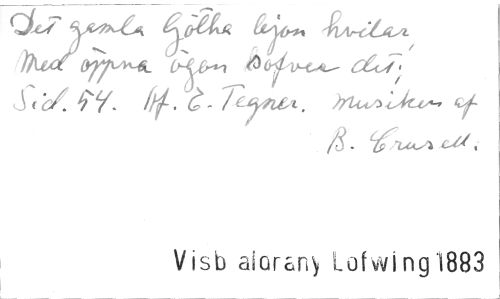 Det gamla Götha lejon hvilar,
Med öppna ögon sofver det;
Sid. 54. Af. E. Tegner. Musiken af
B. Crusell.
Visb alorany Lofwing 1883